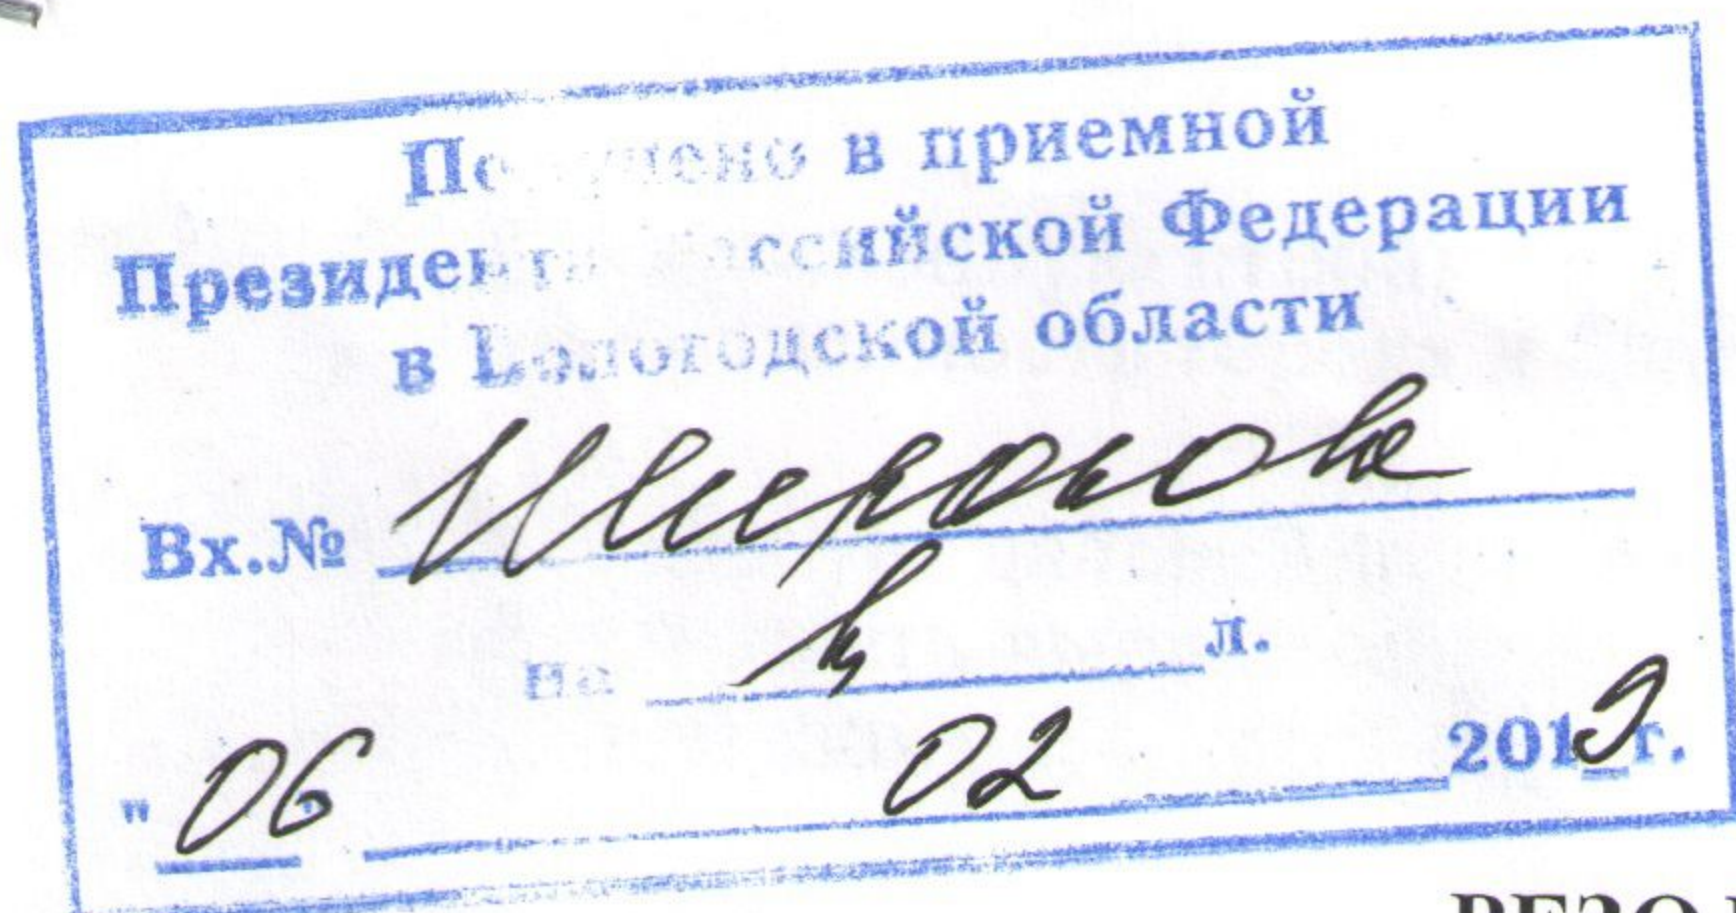 Получено в приемной
Президента Российской Федерации
в Вологодской области
Вх.№ Широкова
на л.
"06 02 2019 г.
РЕЗО